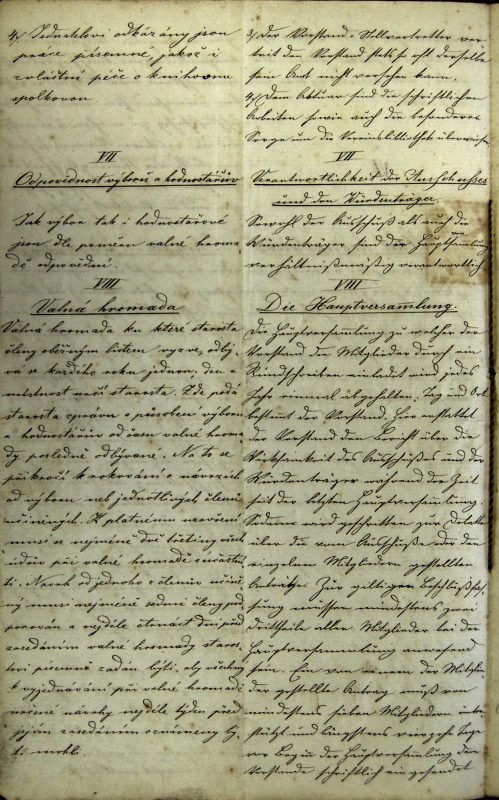 4/ Jednatelovi odkázány jsou
práce písemné, jakož i
zvláštní péče o knihovnu
spolkovou
VII
Odpovědnost výboru a hodnostářův
Jak výbor tak i hodnostářové
jsou dle poměru valné hroma-
dě odpovědni.
VIII
Valná hromada
Valná hromada ku které starosta
členy oběžným listem vyzve, odbý-
vá se každého roku jednou, den a
místnost určí starosta. Zde podá
starosta zprávu o působení výboru
a hodnostářův od času valné hroma-
dy posledně odbývané. Na to se
přikročí k rokování o návrzích
od výboru neb jednotlivých členů
učiněných. K platnému usnešení
musí se nejméně dvě třetiny všech
údův při valné hromadě súčastni-
ti. Návrh od jednoho z členův učině-
ný musí nejméně sedmi členy pod-
porován a nejdéle čtrnáct dní před
zasedáním valné hromady staros-
tovi písemně zadán býti, aby všechny
k vyjednávání při valné hromadě
určené návrhy nejdéle týden před
jejím zasedáním oznámeny bý-
ti mohly.
3/ Der Vorstand-Stellvertretter ver-
tritt den Vorstand stets so oft derselbe
sein Amt nicht versehen kann.
4/ Dem Aktuar sind die schriftlichen
Arbeiten sowie auch die besondere
Sorge um die Vereinsbibliothek überwiesen
VII
Verantwortlichkeit des Ausschusses
und den Würdenträger.
Sowohl der Ausschuß als auch die
Würdenträger sind der Hauptversamlung
verhältnißmäßig verantwortlich
VIII
Die Hauptversamlung.
Die Hauptversamlung zu welcher der
Vorstand die Mitglieder durch ein
Rundschreiben einladet wird jedes
Jahr einmal abgehalten, Tag und Ort
bestimt der Vorstand. Hier erstattet
der Vorstand den Bericht über die
Wirksamkeit des Ausschußes und der
Würdenträger während der Zeit
seit der letzten Hauptversamlung.
Sodann wird geschritten zur Debatte
über die vom Ausschuße oder den
einzelnen Mitgliedern gestellten
Anträge. Zur giltigen Beschlußfas-
sung müssen mindestens zwei
Dritttheile aller Mitglieder bei der
Hauptversammlung anwesend
sein. Ein von einem der Mitglie-
der gestellte Antrag muß von
mindestens sieben Mitgliedern unter-
stützt und längstens vierzehn Tage
vor Beginn der Hauptversamlung dem
Vorstande schriftlich eingesendet